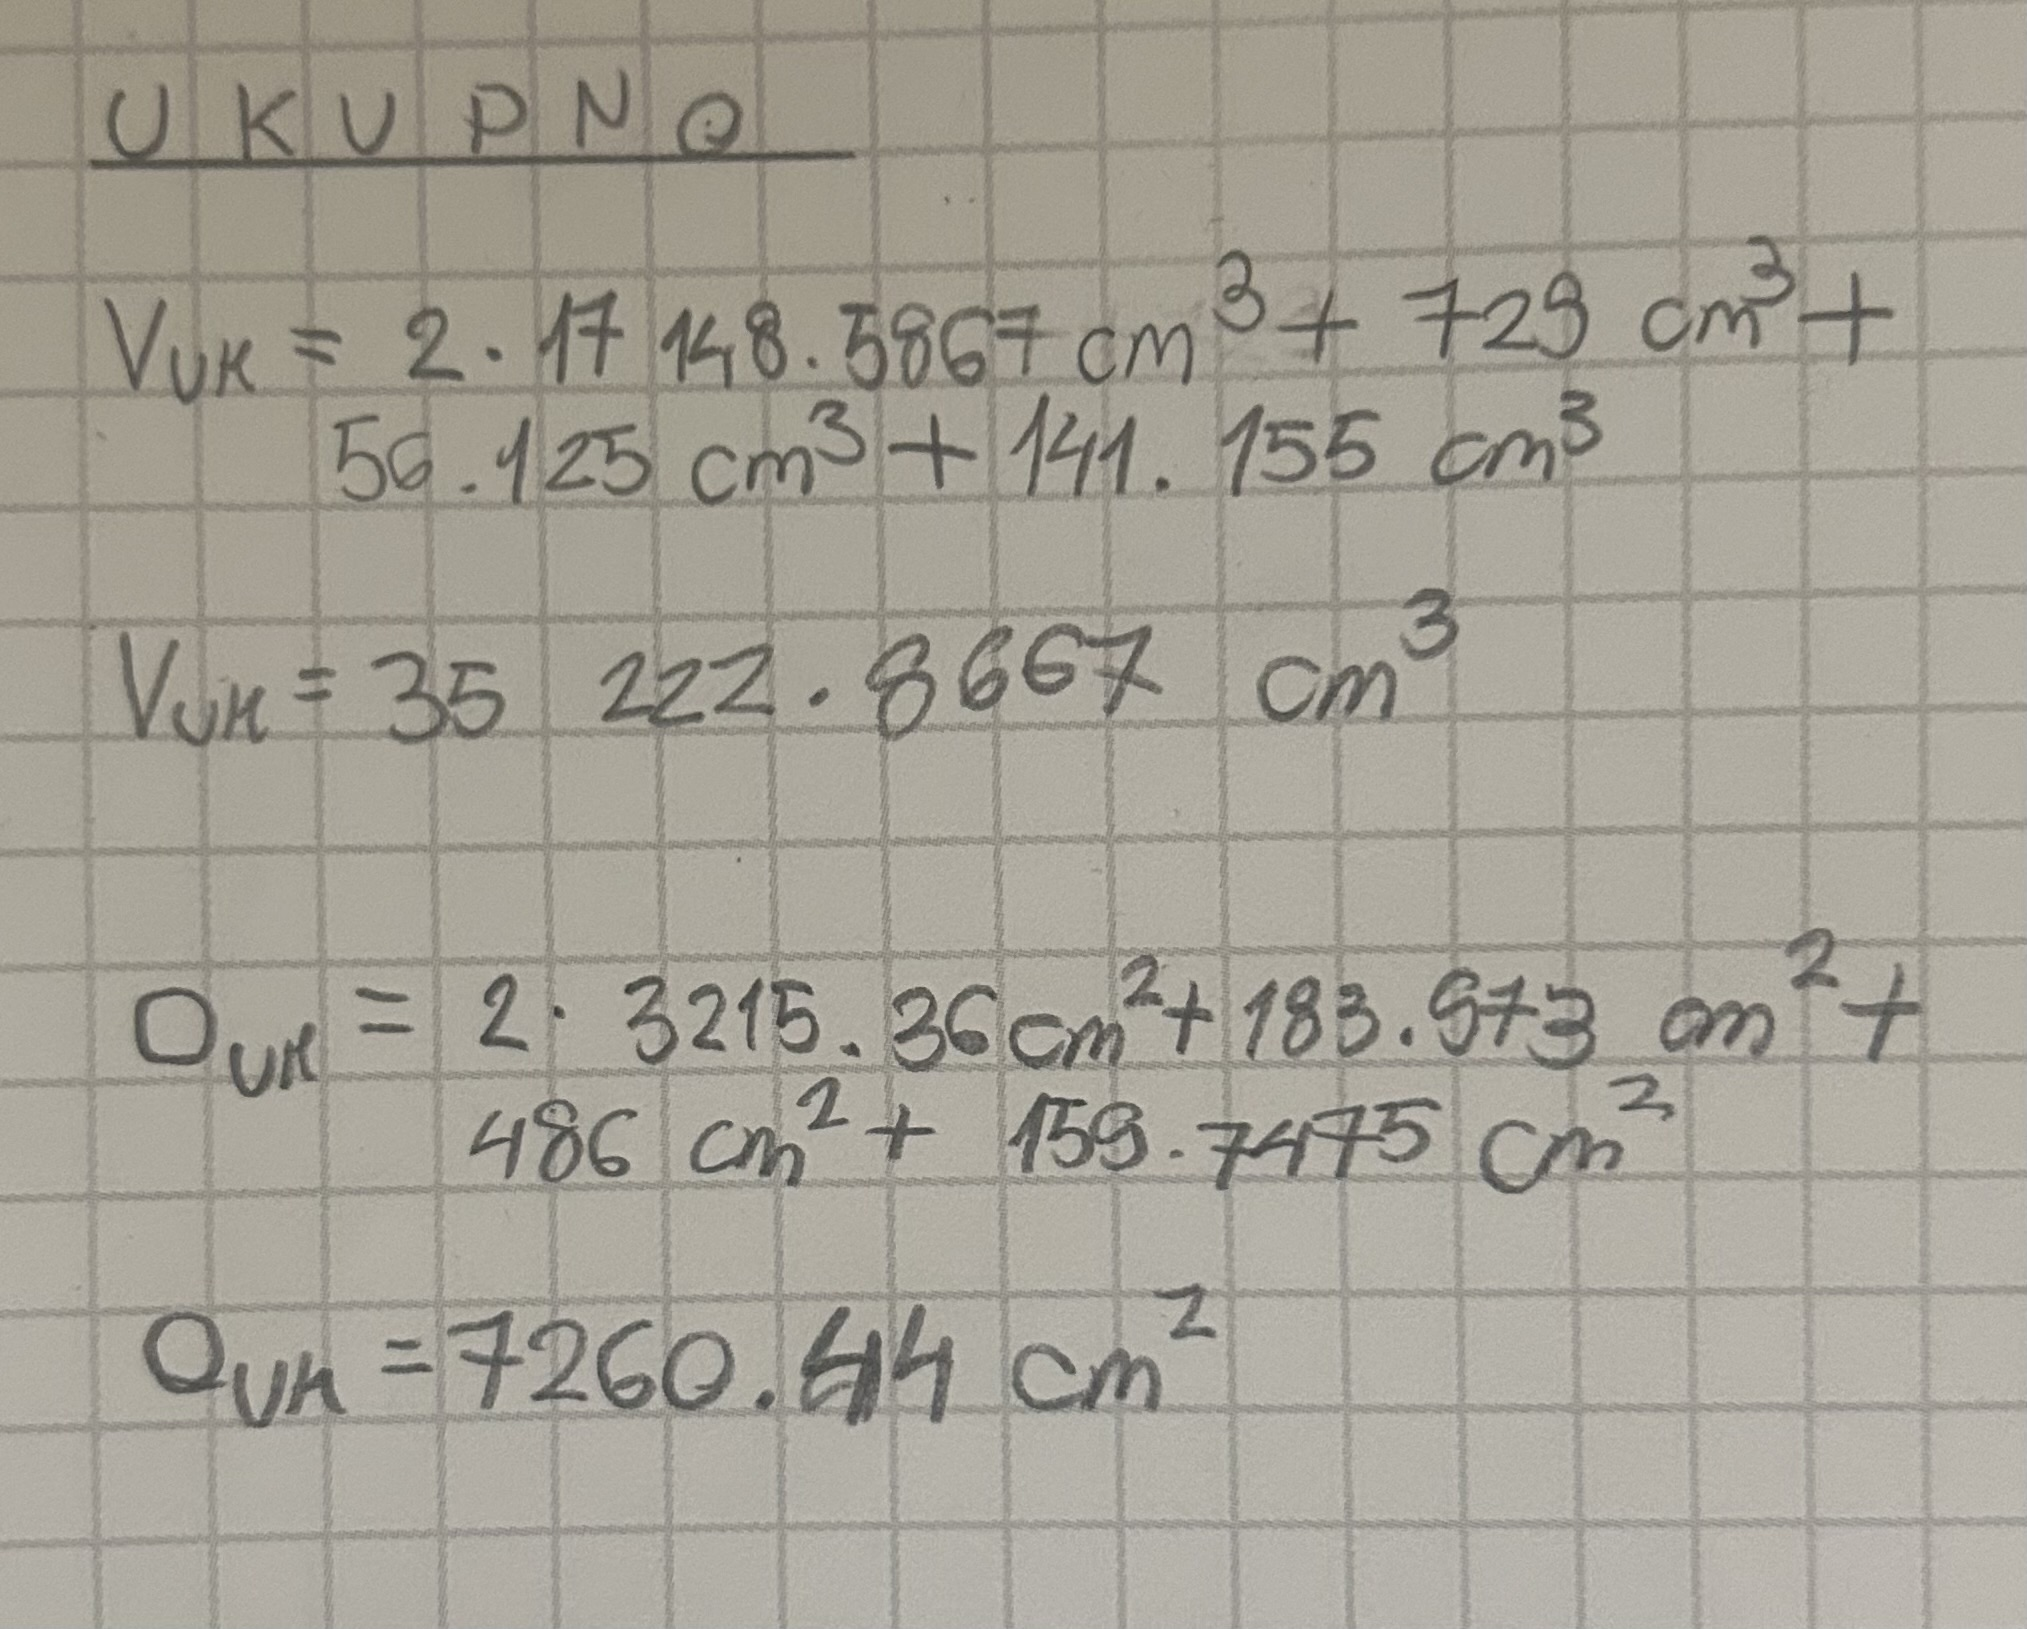 UKUPNO
V_UK = 2 · 17 148.5867 cm³ + 729 cm³ +
56.125 cm³ + 141.155 cm³
V_UK = 35 222.8667 cm³
O_UK = 2 · 3215.36 cm² + 183.973 cm² +
486 cm² + 159.7475 cm²
O_UK = 7260.44 cm²